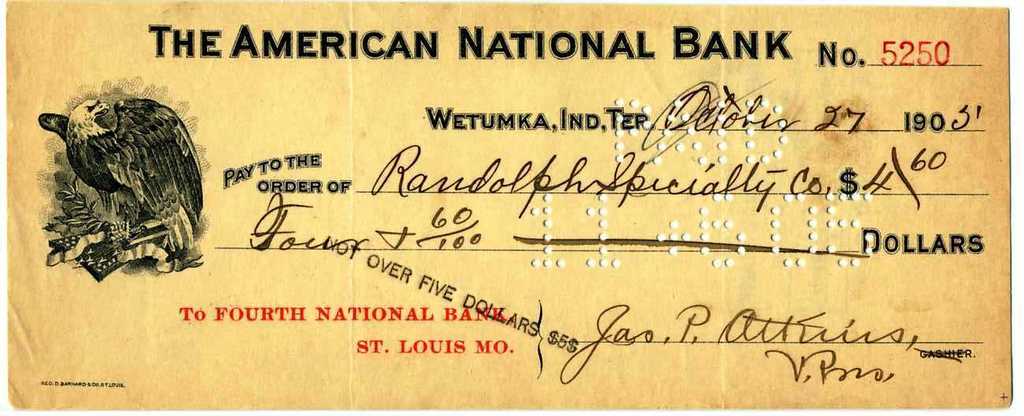 THE AMERICAN NATIONAL BANK No. 5250
WETUMKA, IND, TER. October 27 1905
PAY TO THE ORDER OF Randolph Specialty Co. $ 4 60
Four & 60/100 DOLLARS
NOT OVER FIVE DOLLARS $5$
PAID
11-6-05
TO FOURTH NATIONAL BANK,
ST. LOUIS MO.
Jas. P. Atkins,
CASHIER.
V. Pres.
GEO. D. BARNARD & CO. ST. LOUIS.